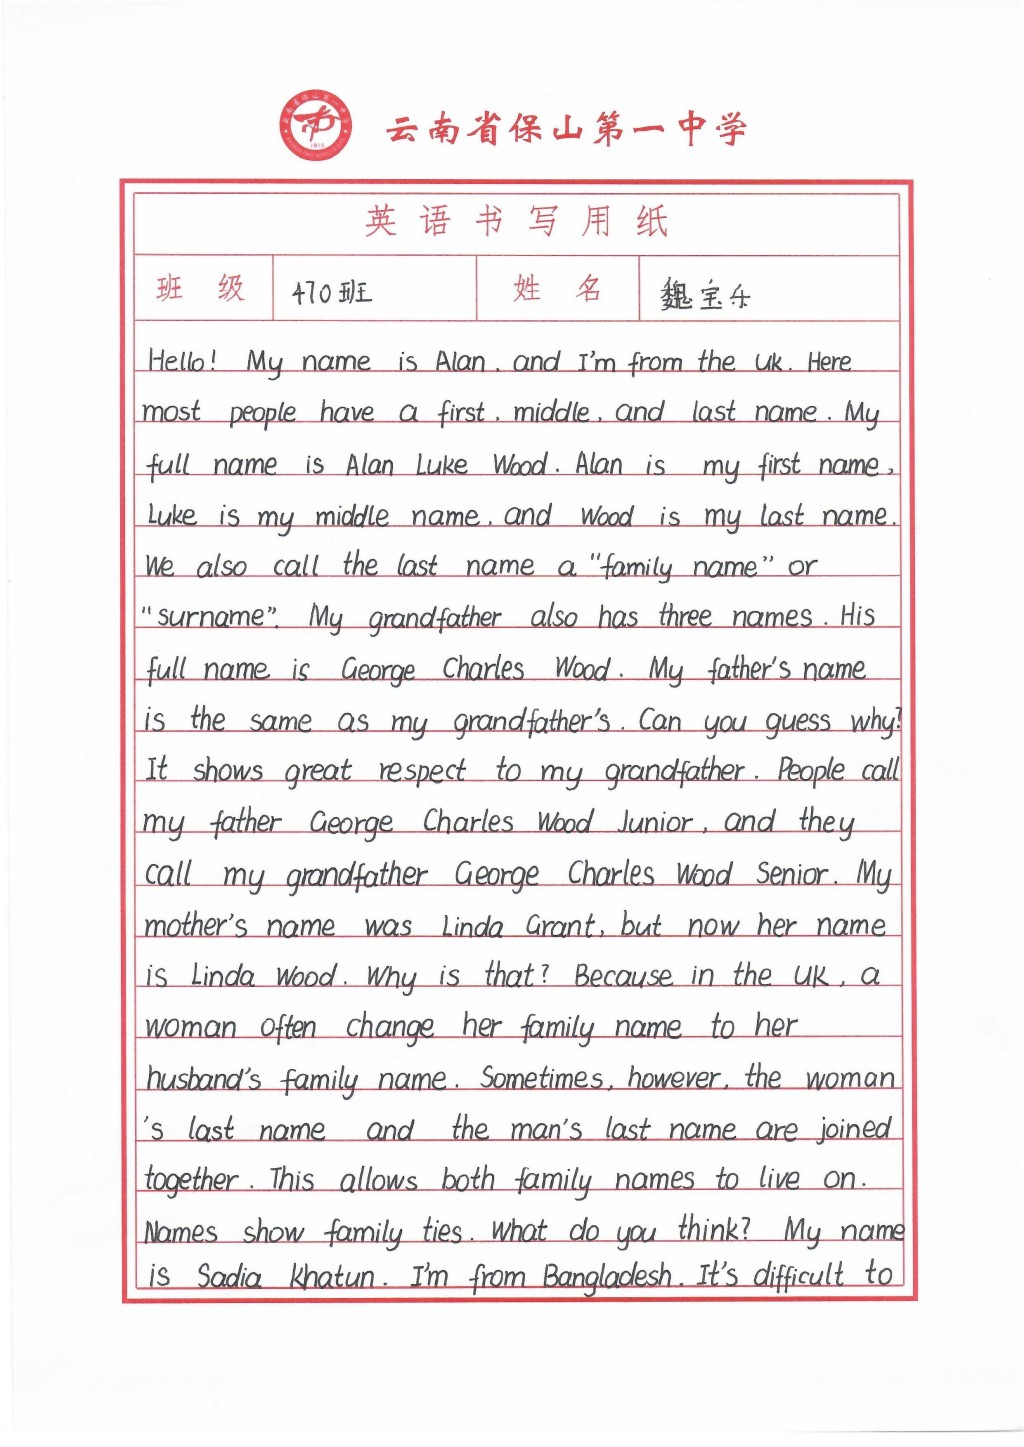 云南省保山第一中学
1912
英语书写用纸
班级 470班 姓名 魏宝乐
Hello! My name is Alan, and I'm from the UK. Here
most people have a first, middle, and last name. My
full name is Alan Luke Wood. Alan is my first name,
Luke is my middle name, and Wood is my last name.
We also call the last name a "family name" or
"surname". My grandfather also has three names. His
full name is George Charles Wood. My father's name
is the same as my grandfather's. Can you guess why?
It shows great respect to my grandfather. People call
my father George Charles Wood Junior, and they
call my grandfather George Charles Wood Senior. My
mother's name was Linda Grant, but now her name
is Linda Wood. Why is that? Because in the UK, a
woman often change her family name to her
husband's family name. Sometimes, however, the woman
's last name and the man's last name are joined
together. This allows both family names to live on.
Names show family ties. What do you think? My name
is Sadia Khatun. I'm from Bangladesh. It's difficult to